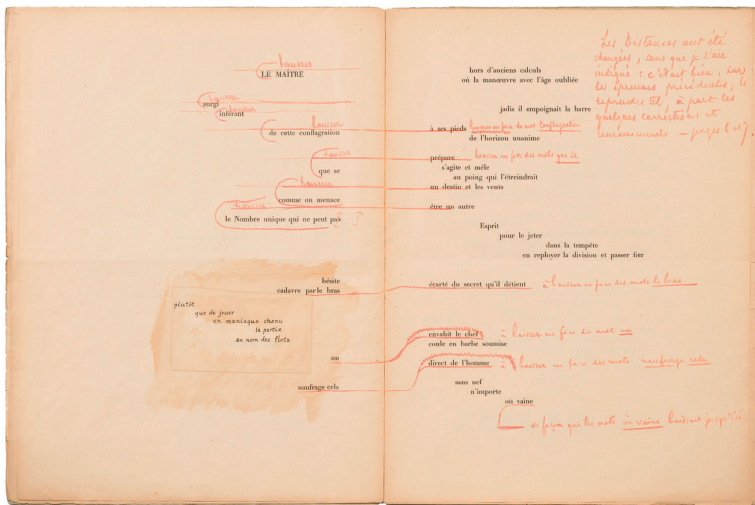 hausser
LE MAÎTRE
hausser
surgi
hausser
inférant
hausser
de cette conflagration
hausser
que se
hausser
comme on menace
hausser
le Nombre unique qui ne peut pas
hésite
cadavre par le bras
plutôt
que de jouer
en maniaque chenu
la partie
au nom des flots
un
naufrage cela
hors d'anciens calculs
où la manœuvre avec l'âge oubliée
jadis il empoignait la barre
à ses pieds hausser en face de mots Conflagration
de l'horizon unanime
prépare hausser en face des mots que se
s'agite et mêle
au poing qui l'étreindrait
un destin et les vents
être un autre
Esprit
pour le jeter
dans la tempête
en reployer la division et passer fier
écarté du secret qu'il détient à baisser en face des mots le bras
envahit le chef à baisser en face du mot un
coule en barbe soumise
direct de l'homme à baisser en face des mots naufrage cela
sans nef
n'importe
où vaine
de façon que les mots où vaine baissent jusqu'ici
Les Distances ont été
changées, sans que je l'aie
indiqué : c'était bien, dans
les épreuves précédentes, le
reprendre tel, à part les
quelques corrections et
pages 6 et 7.